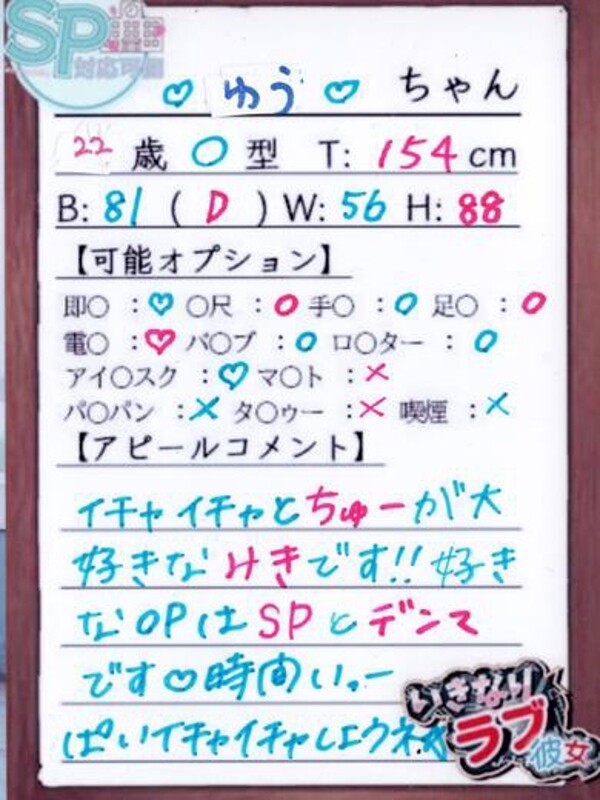 SP
対応可能
♡ ゆう ♡ ちゃん
22 歳 O 型 T: 154 cm
B: 81 ( D ) W: 56 H: 88
【可能オプション】
即〇 : ♡ 〇尺 : O 手〇 : O 足〇 : O
電〇 : ♡ パ〇ブ : O ロ〇ター : O
アイ〇スク : ♡ マ〇ト : ×
パ〇パン : × タ〇ゥー : × 喫煙 : ×
【アピールコメント】
イチャイチャとちゅーが大
好きなみきです!! 好き
なOPはSPとデンマ
です♡時間いっー
ぱいイチャイチャしヨウネ
いきなり
ラブ
彼女